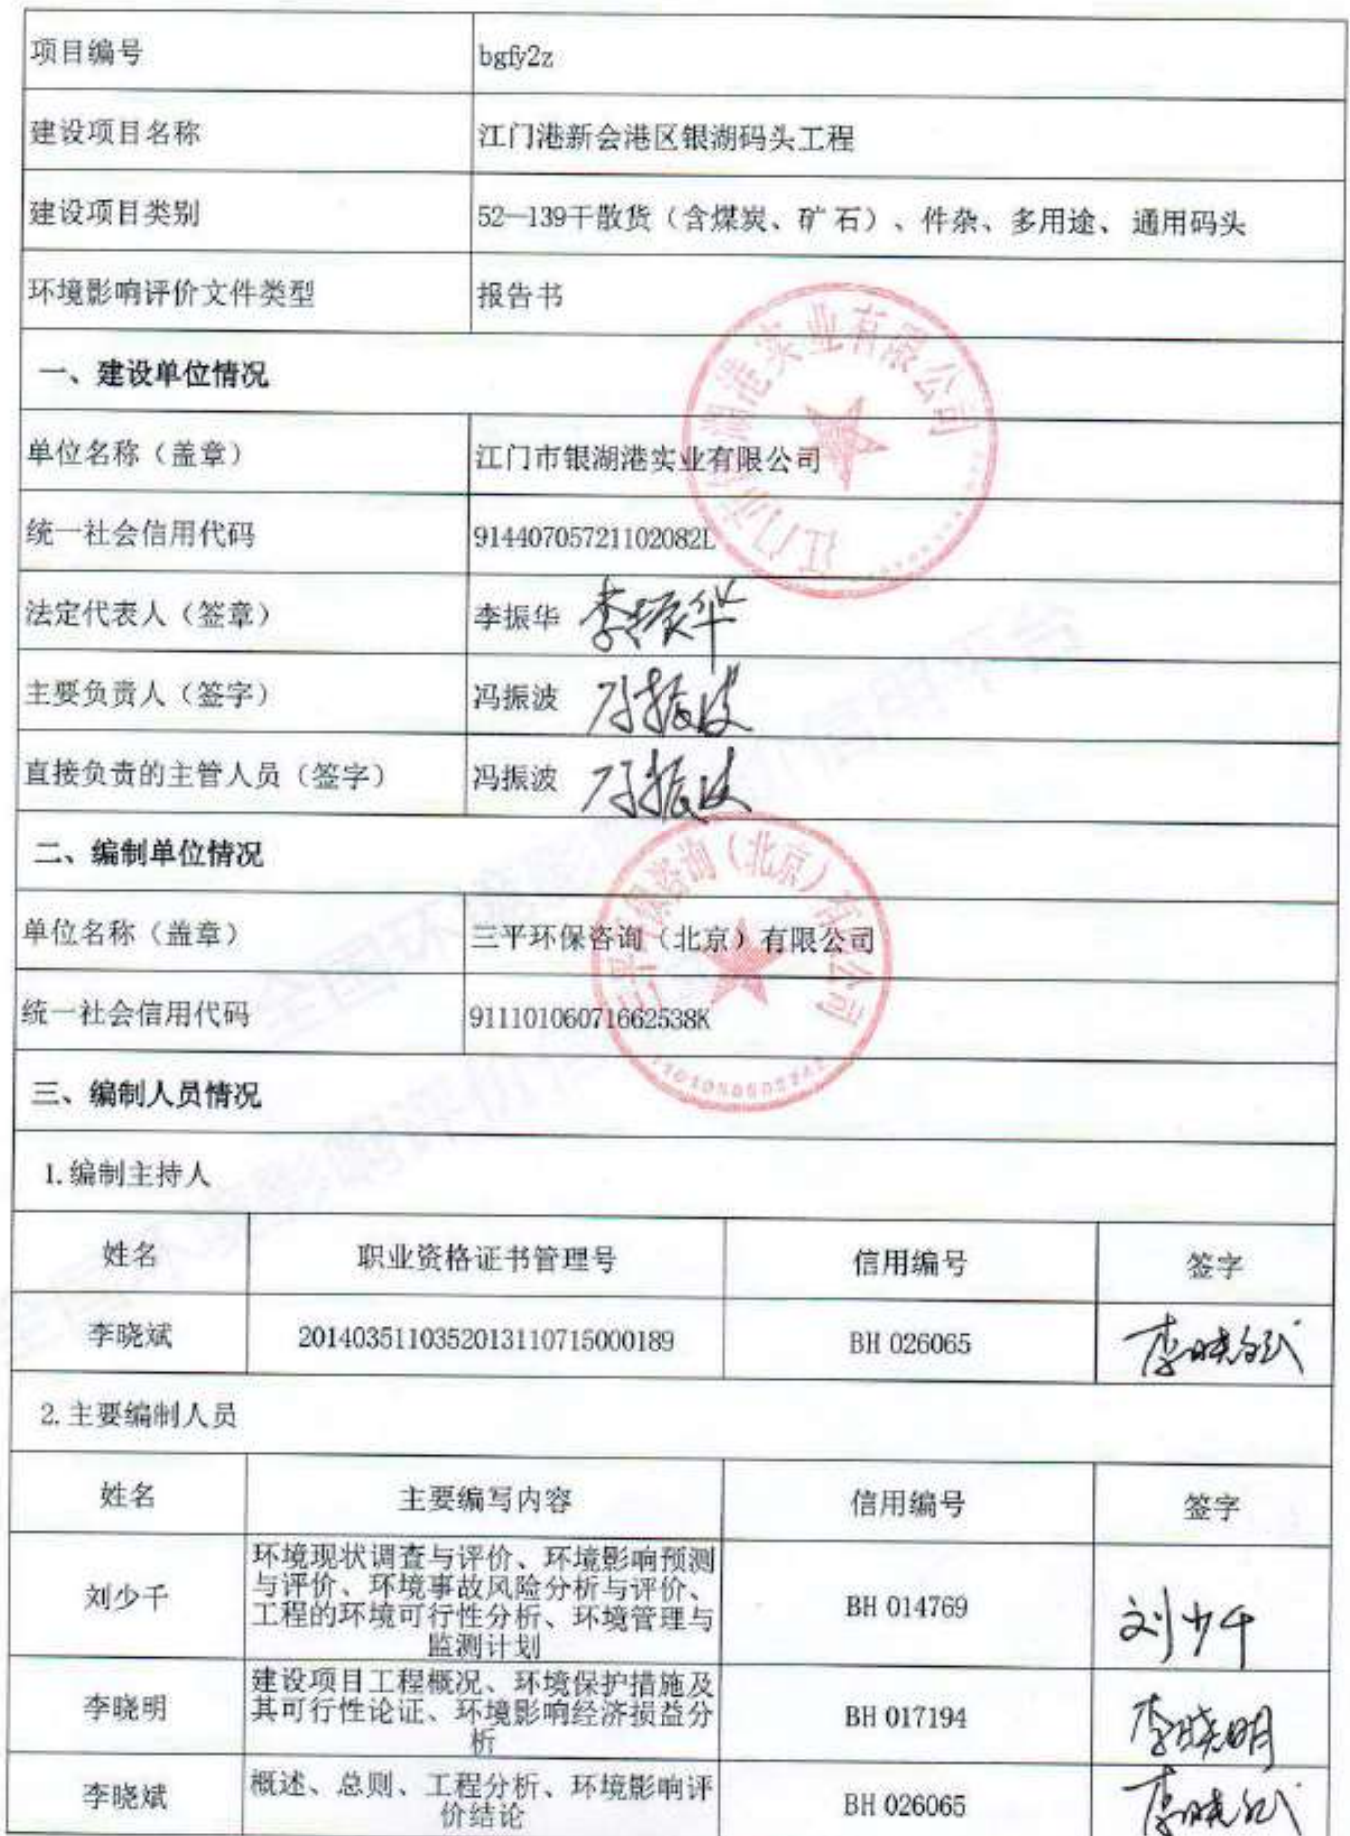 项目编号 bgfy2z
建设项目名称 江门港新会港区银湖码头工程
建设项目类别 52—139干散货（含煤炭、矿石）、件杂、多用途、通用码头
环境影响评价文件类型 报告书
一、建设单位情况
单位名称（盖章） 江门市银湖港实业有限公司
统一社会信用代码 91440705721102082L
法定代表人（签章） 李振华 李振华
主要负责人（签字） 冯振波 冯振波
直接负责的主管人员（签字） 冯振波 冯振波
二、编制单位情况
单位名称（盖章） 三平环保咨询（北京）有限公司
统一社会信用代码 91110106071662538K
三、编制人员情况
1.编制主持人
姓名 职业资格证书管理号 信用编号 签字
李晓斌 2014035110352013110715000189 BH 026065 李晓斌
2.主要编制人员
姓名 主要编写内容 信用编号 签字
环境现状调查与评价、环境影响预测
与评价、环境事故风险分析与评价、
刘少千 工程的环境可行性分析、环境管理与 BH 014769 刘少千
监测计划
建设项目工程概况、环境保护措施及
李晓明 其可行性论证、环境影响经济损益分 BH 017194 李晓明
析
李晓斌 概述、总则、工程分析、环境影响评 BH 026065 李晓斌
价结论
江门市银湖港实业有限公司
三平环保咨询（北京）有限公司